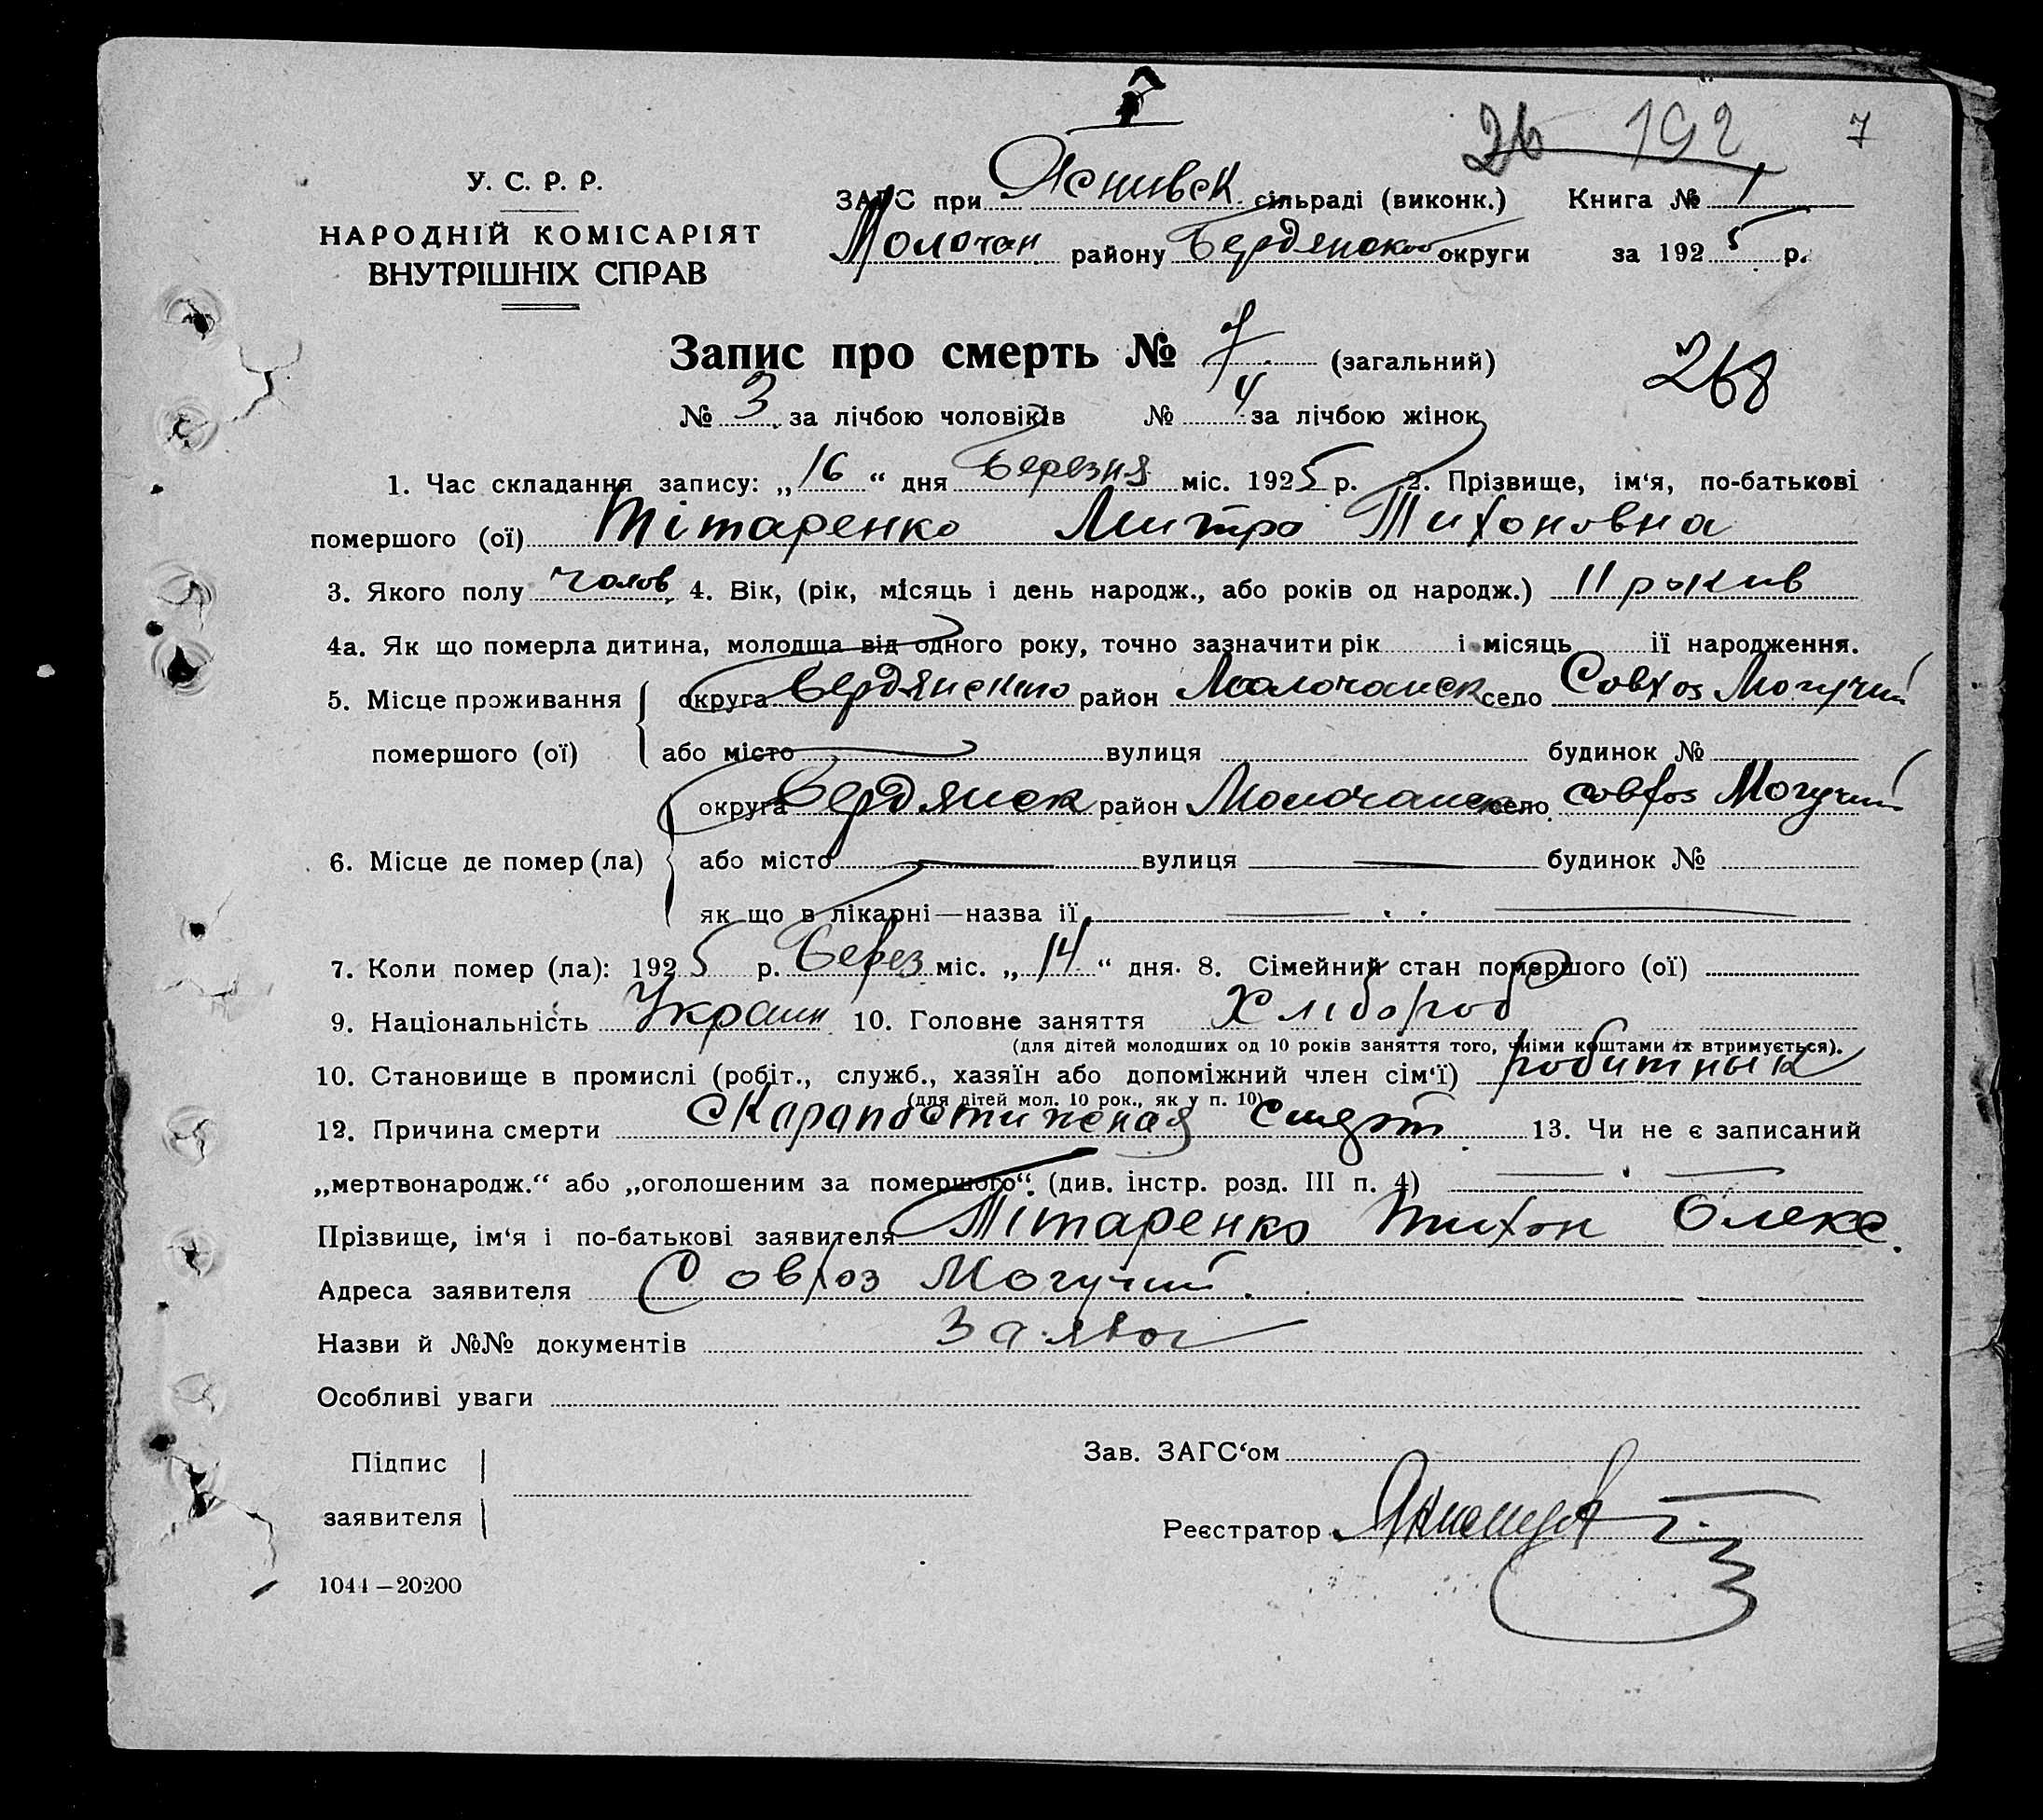 26 192 7
У. С. Р. Р.
НАРОДНІЙ КОМІСАРІЯТ
ВНУТРІШНІХ СПРАВ
ЗАГС при Яснивск сільраді (виконк.) Книга № 1
Молочан району Бердянской округи за 1925 р.
Запис про смерть № 7 (загальний)
268
№ 3 за лічбою чоловіків № 4 за лічбою жінок
1. Час складання запису: „16“ дня Березня міс. 1925 р. 2. Прізвище, ім‘я, по-батькові
помершого (ої) Тітаренко Митро Тихоновна
3. Якого полу Чолов 4. Вік, (рік, місяць і день народж., або років од народж.) 11 рокив
4а. Як що померла дитина, молодща від одного року, точно зазначити рік і місяць її народження.
5. Місце проживання помершого (ої)
округа район Молочанск село Совхоз Могучий
або місто вулиця будинок №
6. Місце де помер (ла)
округа Бердянск район Молочанск село совхоз Могучий
або місто вулиця будинок №
як що в лікарні—назва її
7. Коли помер (ла): 1925 р. Берез міс. „14“ дня. 8. Сімейний стан помершого (ої)
9. Національність Украин 10. Головне заняття Хлібороб
(для дітей молодших од 10 років заняття того, чиїми коштами їх втримується).
10. Становище в промислі (робіт., служб., хазяїн або допоміжний член сім‘ї) робитнык
(для дітей мол. 10 рок., як у п. 10)
12. Причина смерти 13. Чи не є записаний
„мертвонародж.“ або „оголошеним за помершого“. (див. інстр. розд. III п. 4)
Прізвище, ім‘я і по-батькові заявителя Тітаренко Тихон Олекс.
Адреса заявителя Совхоз Могучий.
Назви й №№ документів
Особливі уваги
Підпис заявителя
Зав. ЗАГС‘ом
Реєстратор
1044—20200